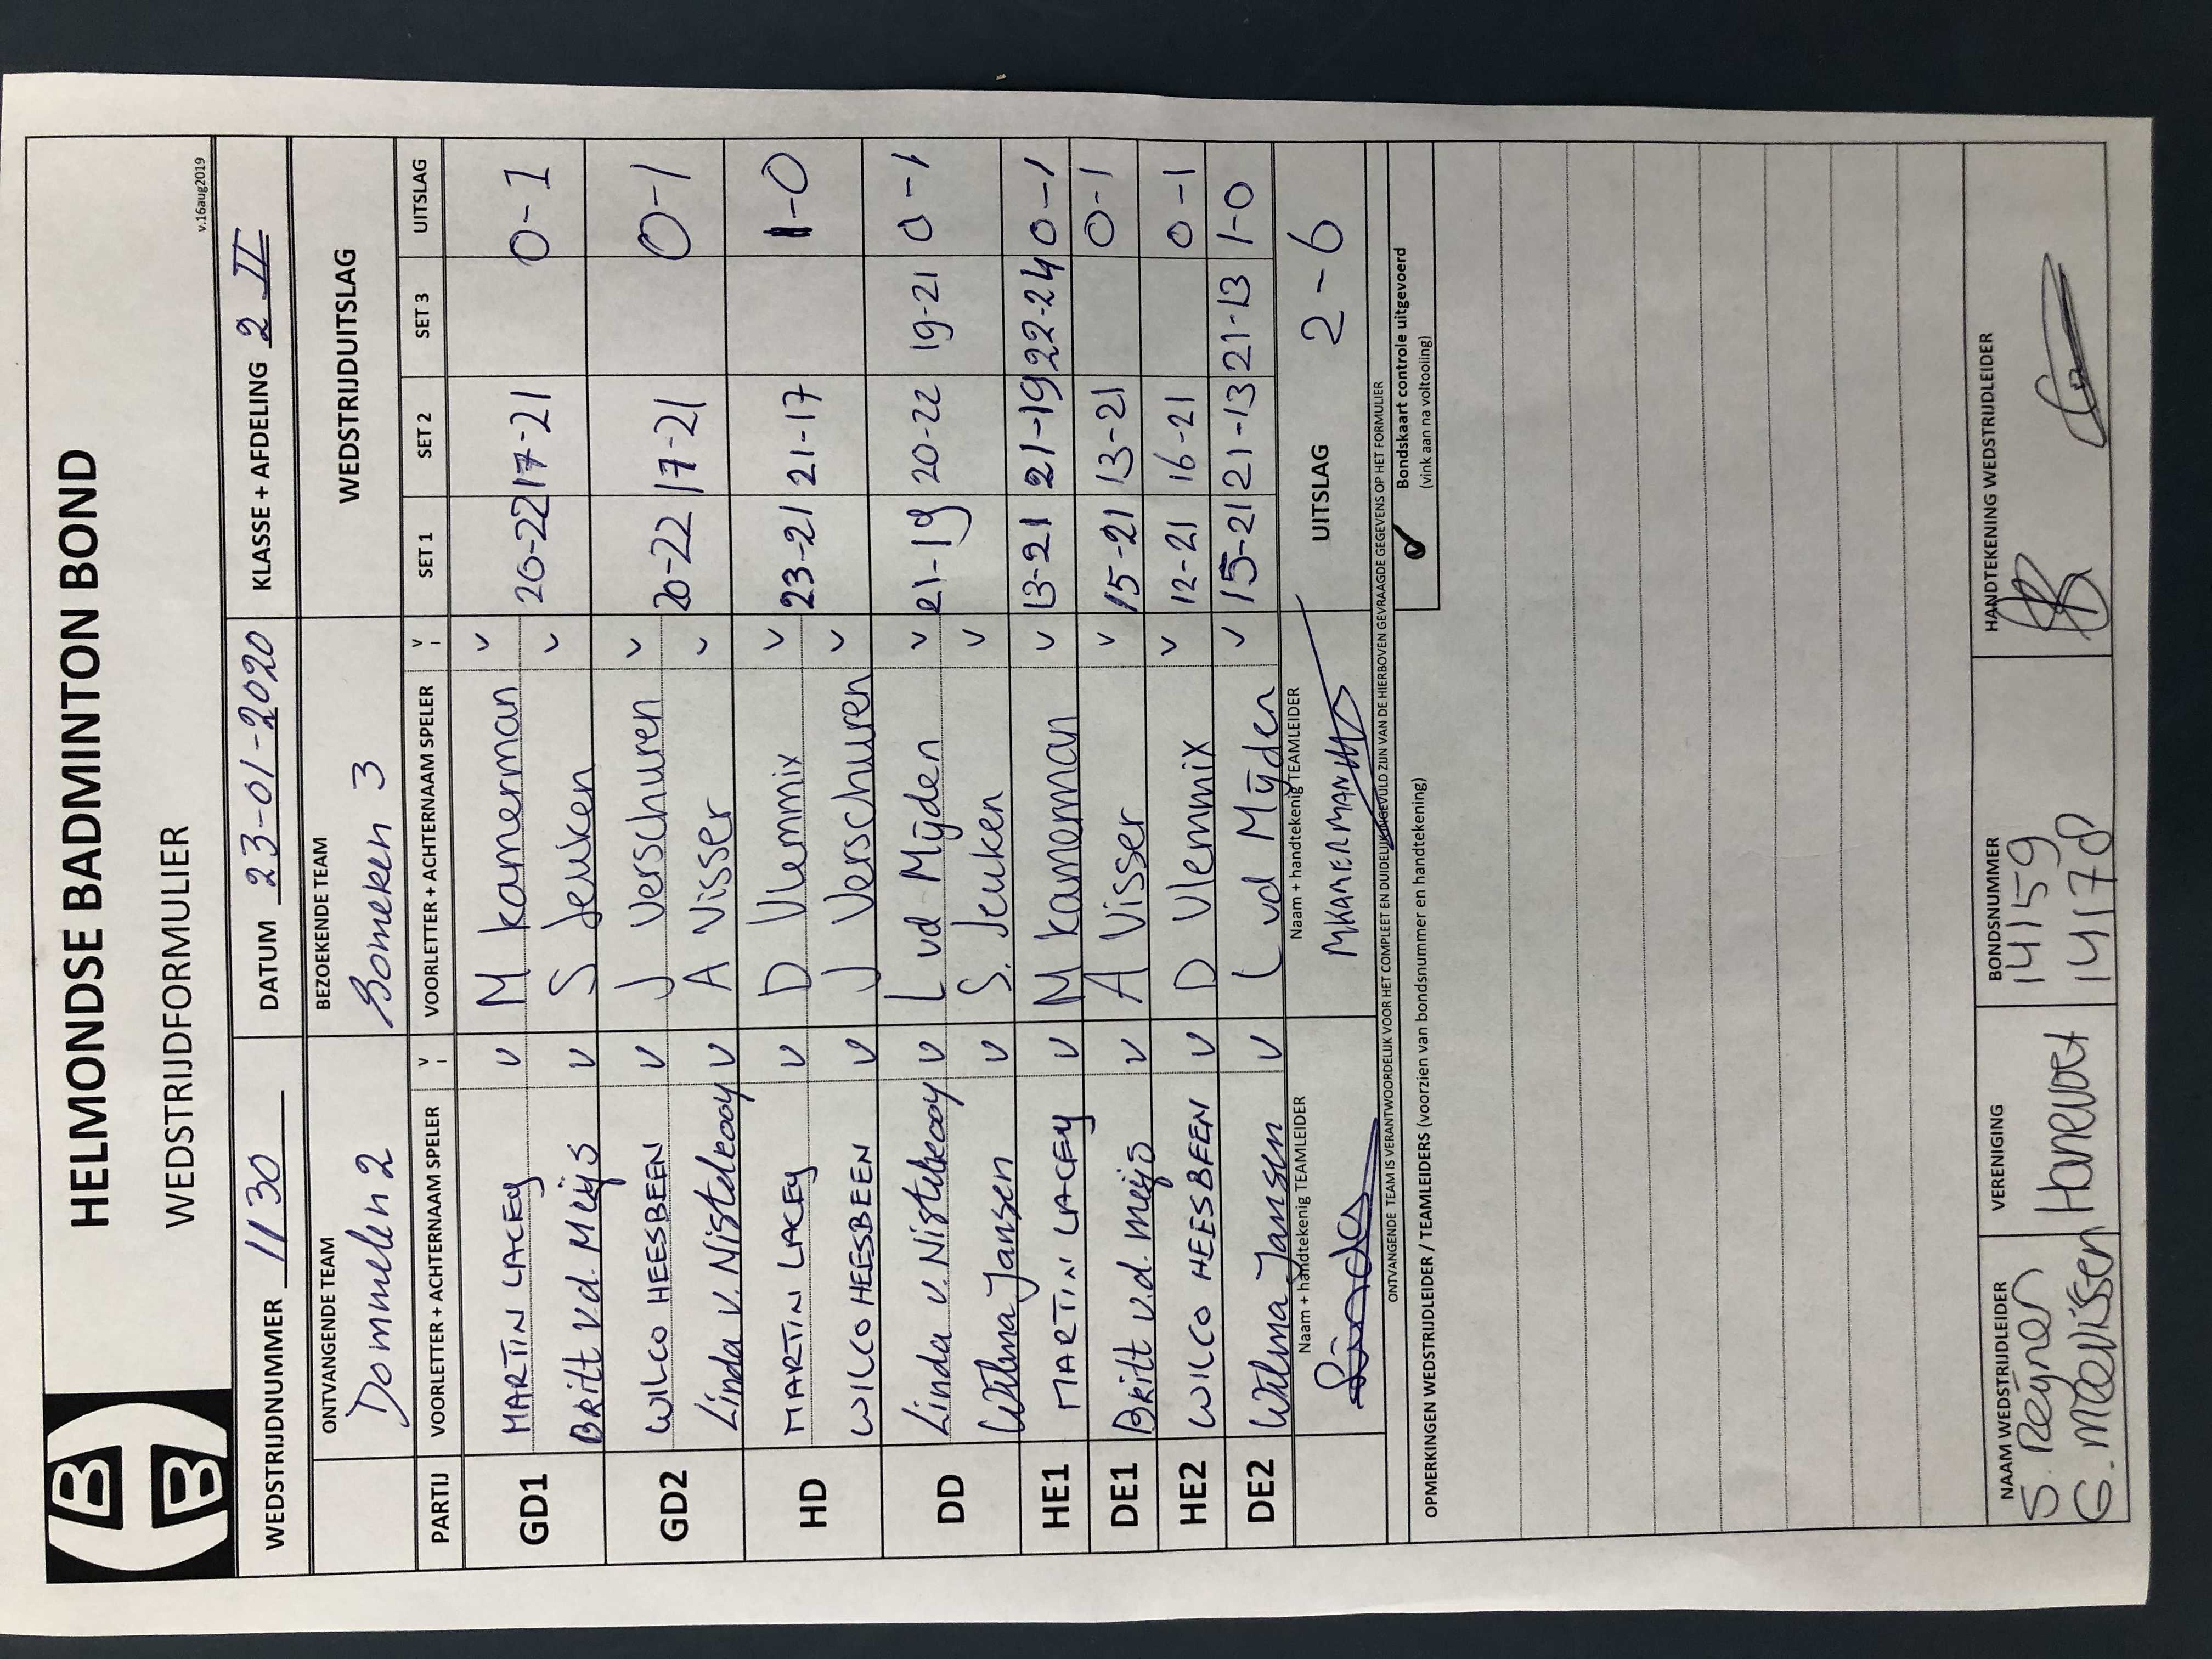 HELMONDSE BADMINTON BOND
WEDSTRIJDFORMULIER
v.16aug2019
WEDSTRIJDNUMMER 1130 DATUM 23-01-2020 KLASSE + AFDELING 2 II
ONTVANGENDE TEAM BEZOEKENDE TEAM WEDSTRIJDUITSLAG
Dommelen 2 Someren 3
PARTIJ VOORLETTER + ACHTERNAAM SPELER V VOORLETTER + ACHTERNAAM SPELER V SET 1 SET 2 SET 3 UITSLAG
GD1 MARTIN LACEY V M Kamerman V 20-22 17-21 0-1
Britt v.d. Meijs V S Jeuken V
GD2 WILCO HEESBEEN V J Verschuren V 20-22 17-21 0-1
Linda v. Nistelrooy V A Visser V
HD MARTIN LACEY V D Vlemmix V 23-21 21-17 1-0
WILCO HEESBEEN V J Verschuren V
DD Linda v. Nistelrooy V L vd Mijden V 21-19 20-22 19-21 0-1
Wilma Jansen V S. Jeuken V
HE1 MARTIN LACEY V M Kamerman V 13-21 21-19 22-24 0-1
DE1 Britt v.d. Meijs V A Visser V 15-21 13-21 0-1
HE2 WILCO HEESBEEN V D Vlemmix V 12-21 16-21 0-1
DE2 Wilma Jansen V L vd Mijden V 15-21 21-13 21-13 1-0
Naam + handtekenig TEAMLEIDER Naam + handtekenig TEAMLEIDER UITSLAG 2-6
Linda MKAMERMAN
ONTVANGENDE TEAM IS VERANTWOORDELIJK VOOR HET COMPLEET EN DUIDELIJK INGEVULD ZIJN VAN DE HIERBOVEN GEVRAAGDE GEGEVENS OP HET FORMULIER
Bondskaart controle uitgevoerd
(vink aan na voltooiing)
OPMERKINGEN WEDSTRIJDLEIDER / TEAMLEIDERS (voorzien van bondsnummer en handtekening)
NAAM WEDSTRIJDLEIDER VERENIGING BONDSNUMMER HANDTEKENING WEDSTRIJDLEIDER
S. Reijner Hanevoet 14159
G. Meevissen 14178